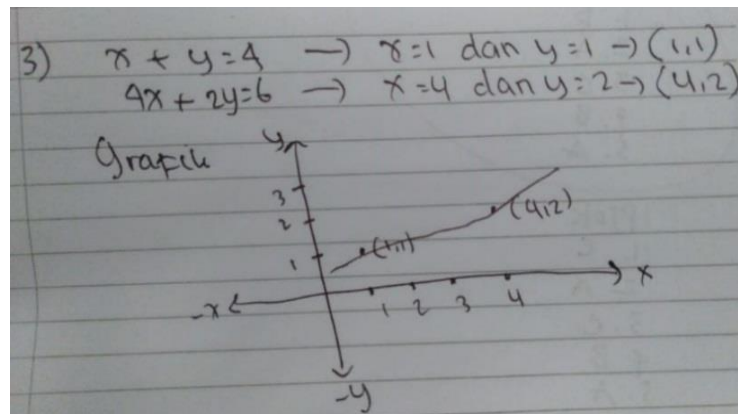 3) x + y = 4 → x = 1 dan y = 1 → (1,1)
4x + 2y = 6 → x = 4 dan y = 2 → (4,2)
Grafik
y
3
2
1
(1,1)
(4,2)
-x
x
1 2 3 4
-y